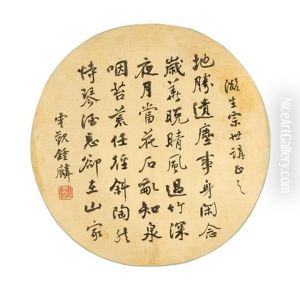 湖生宗世講正之
地勝遺塵事身閑念
歲華晚晴風過竹深
夜月當花石亂知泉
咽苔荒任徑斜陶然
恃琴酒忘卻在山家
雲覲鍾麟